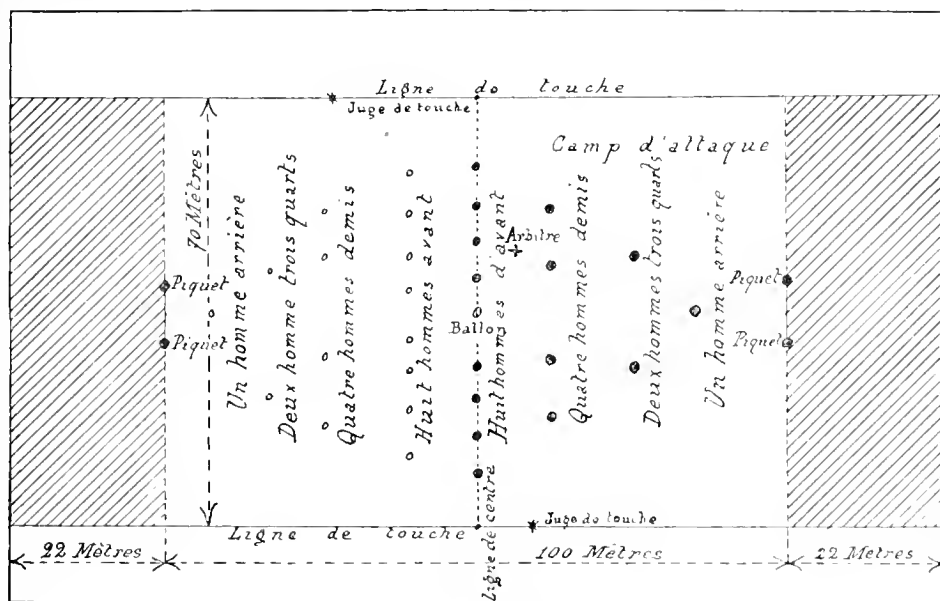 Ligne de touche
Juge de touche
Camp d'attaque
70 Mètres
Un homme arrière
Deux homme trois quarts
Quatre hommes demis
Huit hommes avant
Huit hommes d'avant
Arbitre
Quatre hommes demis
Deux hommes trois quarts
Un homme arrière
Piquet
Piquet
Piquet
Piquet
Ballon
Ligne de centre
Ligne de touche
Juge de touche
22 Mètres
100 Mètres
22 Mètres